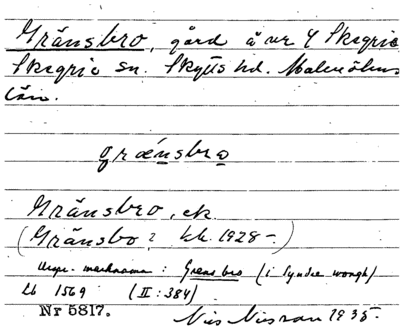 Gränsbro, gård å nr 4 Skegrie
Skegrie sn. Skytts hd. Malmöhus
län.
græ̀nsbro
Gränsbro, ek.
(Gränsbo? kk. 1928-.)
Urspr. marknamn: Grens bro (i Syndre wongh)
Lb 1569 (II:384)
Nr 5817. Nils Nilsson 1935.